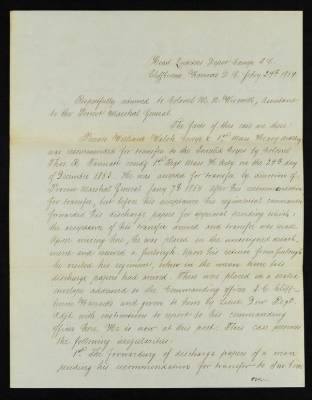 Head Quarters Depot Camp I.C.
Cliffburne Barracks D.C. Feby 24th 1864
Respectfully returned to Colonel M. N. Wisewell, Assistant
to the Provost Marshal General.
The facts of this case are these:
Private William Welch Compy 1st Mass Heavy Arty
was recommended for transfer to the Invalid Corps by Colonel
Thos. R. Tannatt comdg 1st Regt Mass H. Arty on the 24th day
of December 1863. He was ordered for transfer by direction of
Provost Marshal General Jany 7th 1864 after his recommendation
for transfer, but before his acceptance his regimental commander
forwarded his discharge papers for approval. Pending which
the acceptance of his transfer arrived and transfer was made.
Upon arriving here, he was placed in the
and received a furlough. Upon his return from furlough
he visited his regiment, when in the mean time his
discharge papers had arrived. These were placed in a
envelope addressed to the Commanding officer I.C. Cliff-
burne Barracks and given to him by Lieut. Regt.
Adjt. with instructions to report to the commanding
officer here. He is now at this post. This case presents
the following irregularities:
1st The forwarding of discharge papers of a man
pending his recommendation for transfer to Inv Corps
over